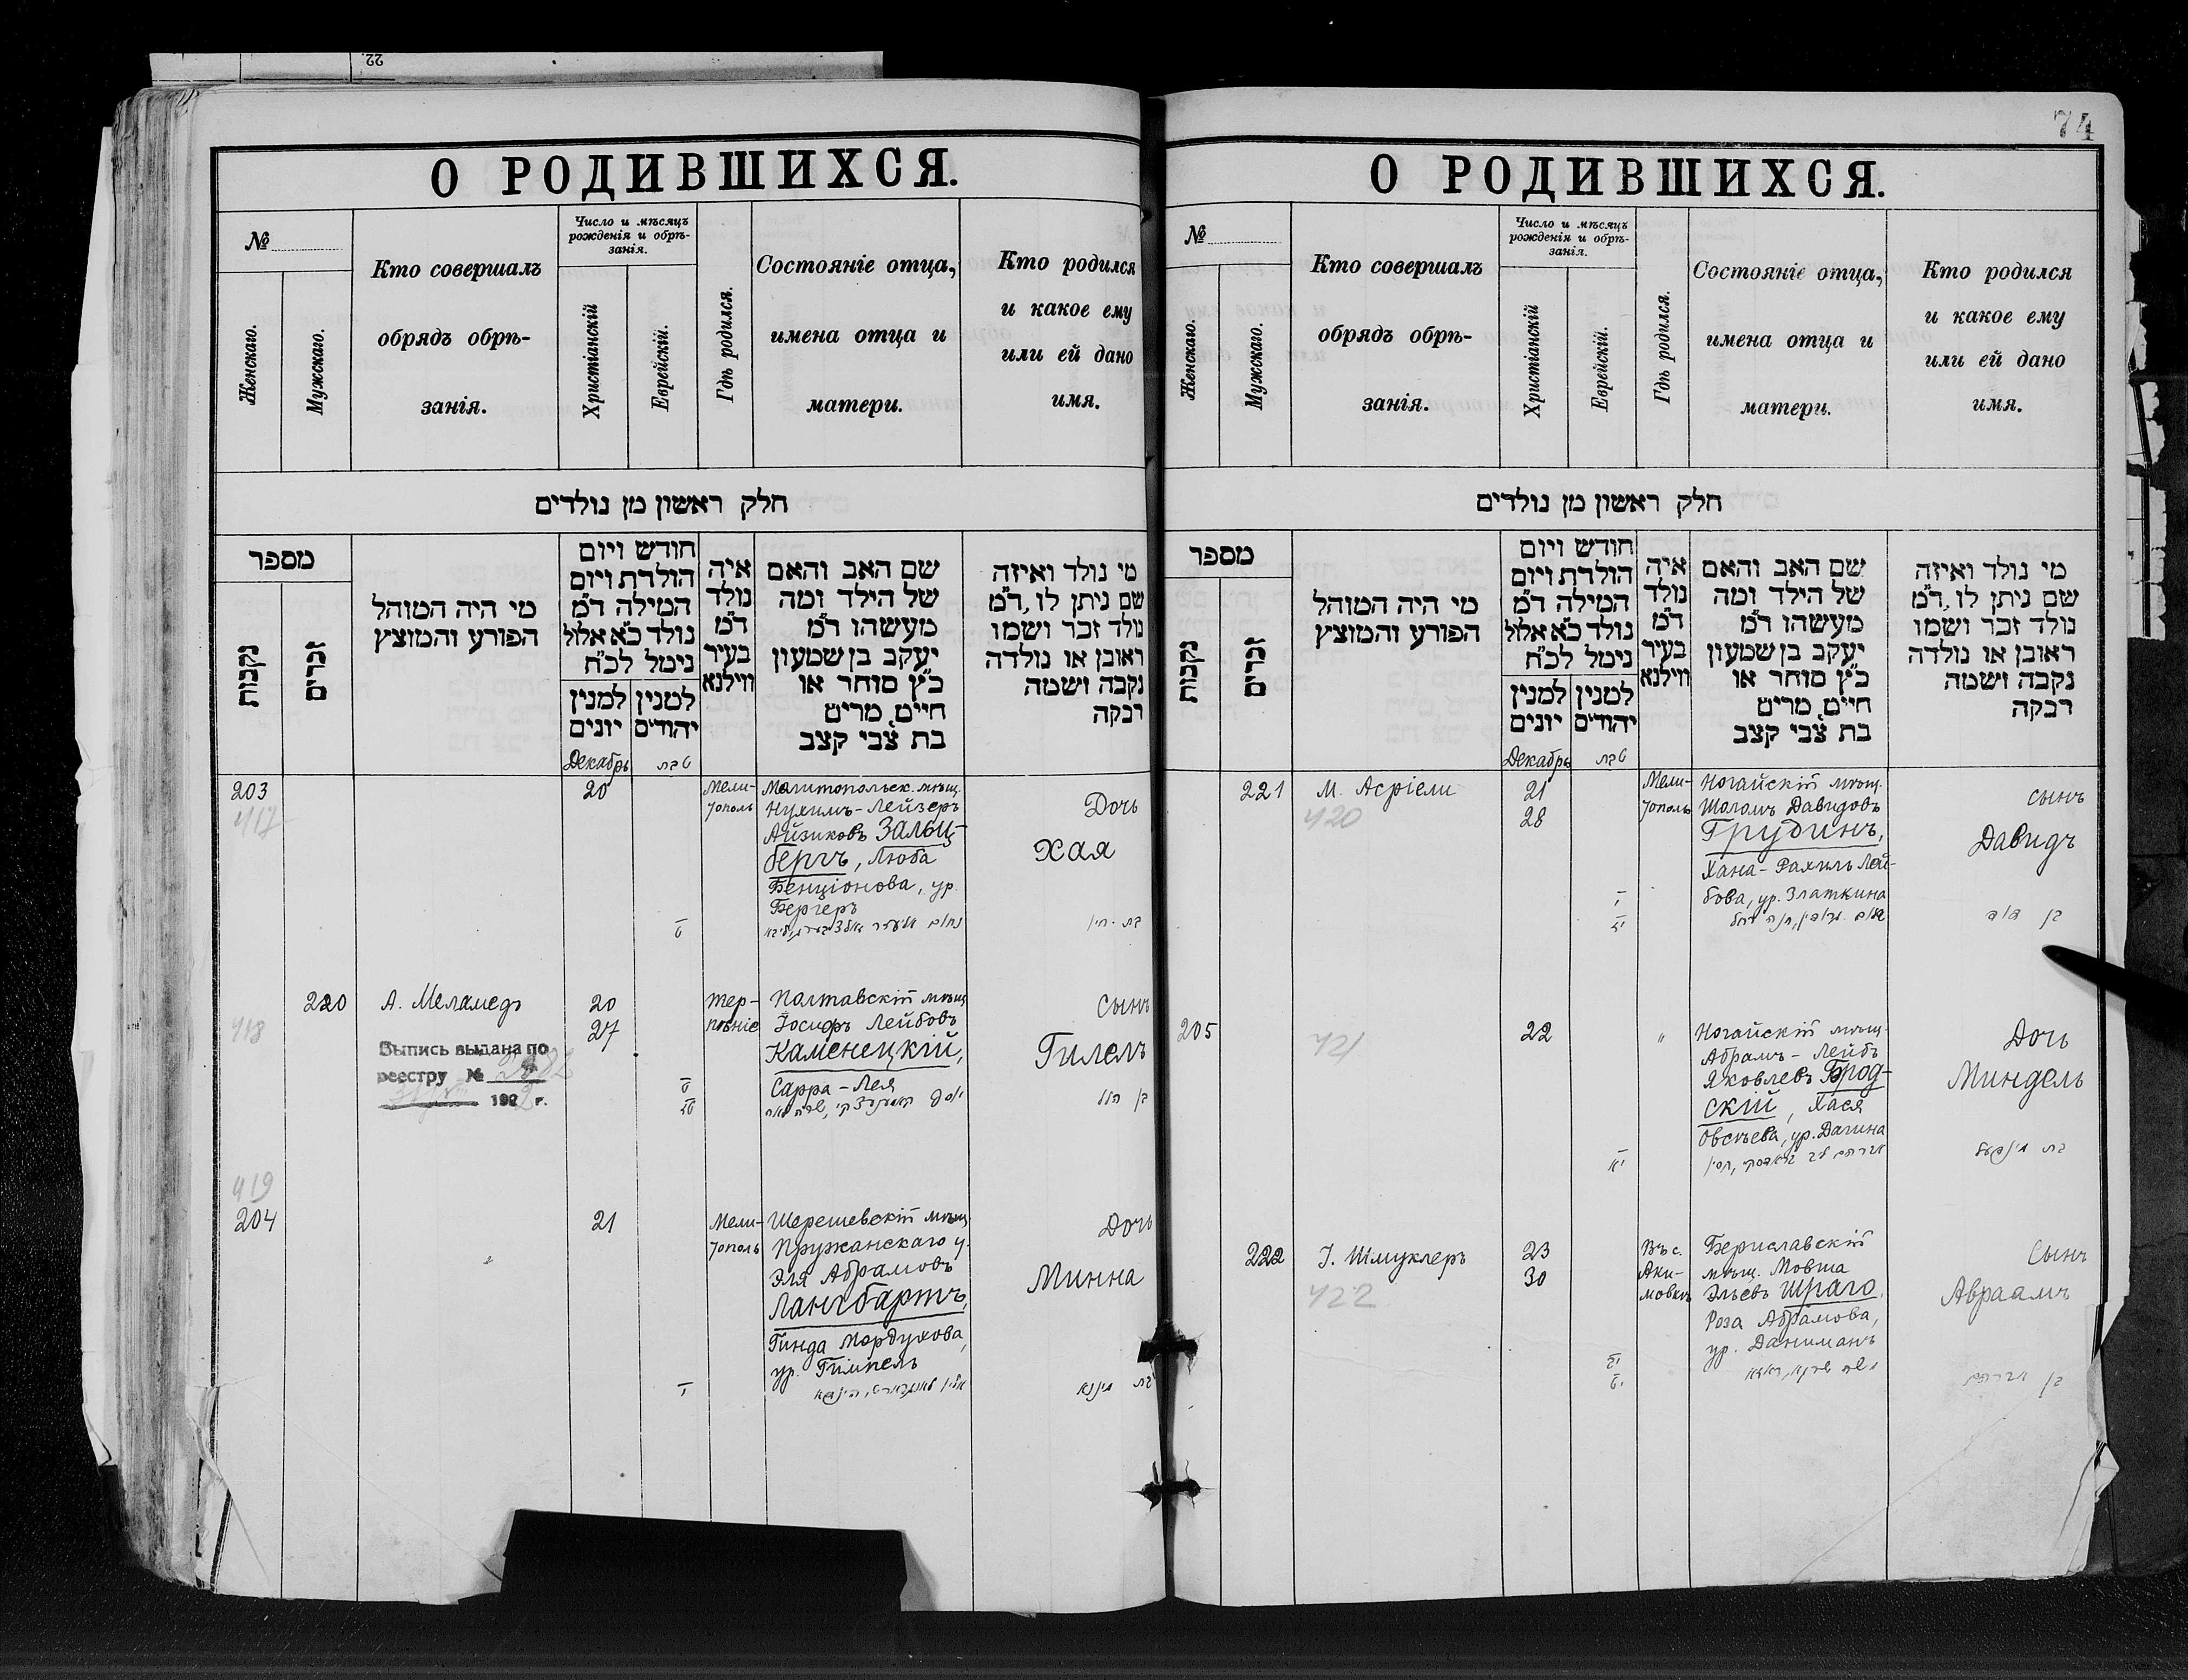 22
О РОДИВШИХСЯ.
№
Женскаго.
Мужскаго.
Кто совершалъ
обрядъ обрѣ-
занія.
Число и мѣсяцъ
рожденія и обрѣ-
занія.
Христіанскій
Еврейскій.
Гдѣ родился.
Состояніе отца,
имена отца и
матери.
Кто родился
и какое ему
или ей дано
имя.
חלק ראשון מן נולדים
מספר
נקבות
זכרים
מי היה המוהל
הפורע והמוצץ
חודש ויום
הולדת ויום
המילה ד״מ
נולד כ״א אלול
נימל לכ״ח
למנין
יונים
למנין
יהודים
איה
נולד
ד״מ
בעיר
ווילנא
שם האב והאם
של הילד ומה
מעשהו ד״מ
יעקב בן שמעון
כ״ץ סוחר או
חיים, מרים
בת צבי קצב
מי נולד ואיזה
שם ניתן לו, ד״מ
נולד זכר ושמו
ראובן או נולדה
נקבה ושמה
רבקה
Декабрь
טבת
203
417
20
Мели-
тополь
Мелитопольск. мѣщ.
Нухимъ-Лейзеръ
Айзиковъ Зальц-
бергъ, Люба
Бенціонова, ур.
Бергеръ
ט
Дочь
Хая
220
418
А. Меламедъ
Выпись выдана по
реестру №
192 г.
20
27
Тер-
пѣніе
Полтавскій мѣщ.
Іосифъ Лейбовъ
Каменецкій,
Сарра-Лея
ט
טז
Сынъ
Гилель
419
204
21
Мели-
тополь
Шерешевскій мѣщ.
Пружанскаго у.
Эля Абрамовъ
Лангбартъ,
Гинда Мордухова,
ур. Гимпель
י
Дочь
Минна
בת מינא
74
О РОДИВШИХСЯ.
№
Женскаго.
Мужскаго.
Кто совершалъ
обрядъ обрѣ-
занія.
Число и мѣсяцъ
рожденія и обрѣ-
занія.
Христіанскій
Еврейскій.
Гдѣ родился.
Состояніе отца,
имена отца и
матери.
Кто родился
и какое ему
или ей дано
имя.
חלק ראשון מן נולדים
מספר
נקבות
זכרים
מי היה המוהל
הפורע והמוצץ
חודש ויום
הולדת ויום
המילה ד״מ
נולד כ״א אלול
נימל לכ״ח
למנין
יונים
למנין
יהודים
איה
נולד
ד״מ
בעיר
ווילנא
שם האב והאם
של הילד ומה
מעשהו ד״מ
יעקב בן שמעון
כ״ץ סוחר או
חיים, מרים
בת צבי קצב
מי נולד ואיזה
שם ניתן לו, ד״מ
נולד זכר ושמו
ראובן או נולדה
נקבה ושמה
רבקה
Декабрь
טבת
221
420
М. Асріели
21
28
Мели-
тополь
Ногайскій мѣщ.
Шоломъ Давидовъ
Грудинъ,
Хана-Рахиль Лей-
бова, ур. Златкина
י
יז
сынъ
Давидъ
בן דוד
205
421
22
"
Ногайскій мѣщ.
Абрамъ-Лейбъ
Яковлевъ Брод-
скій, Хася
Овсѣева, ур. Дагина
יא
Дочь
Миндель
בת מינדעל
222
422
І. Шмуклеръ
23
30
Въ с.
Аки-
мовкѣ
Бериславскій
мѣщ. Мовша
Эльевъ Шраго,
Роза Абрамова,
ур. Даниманъ
יב
יט
Сынъ
Авраамъ
בן אברהם